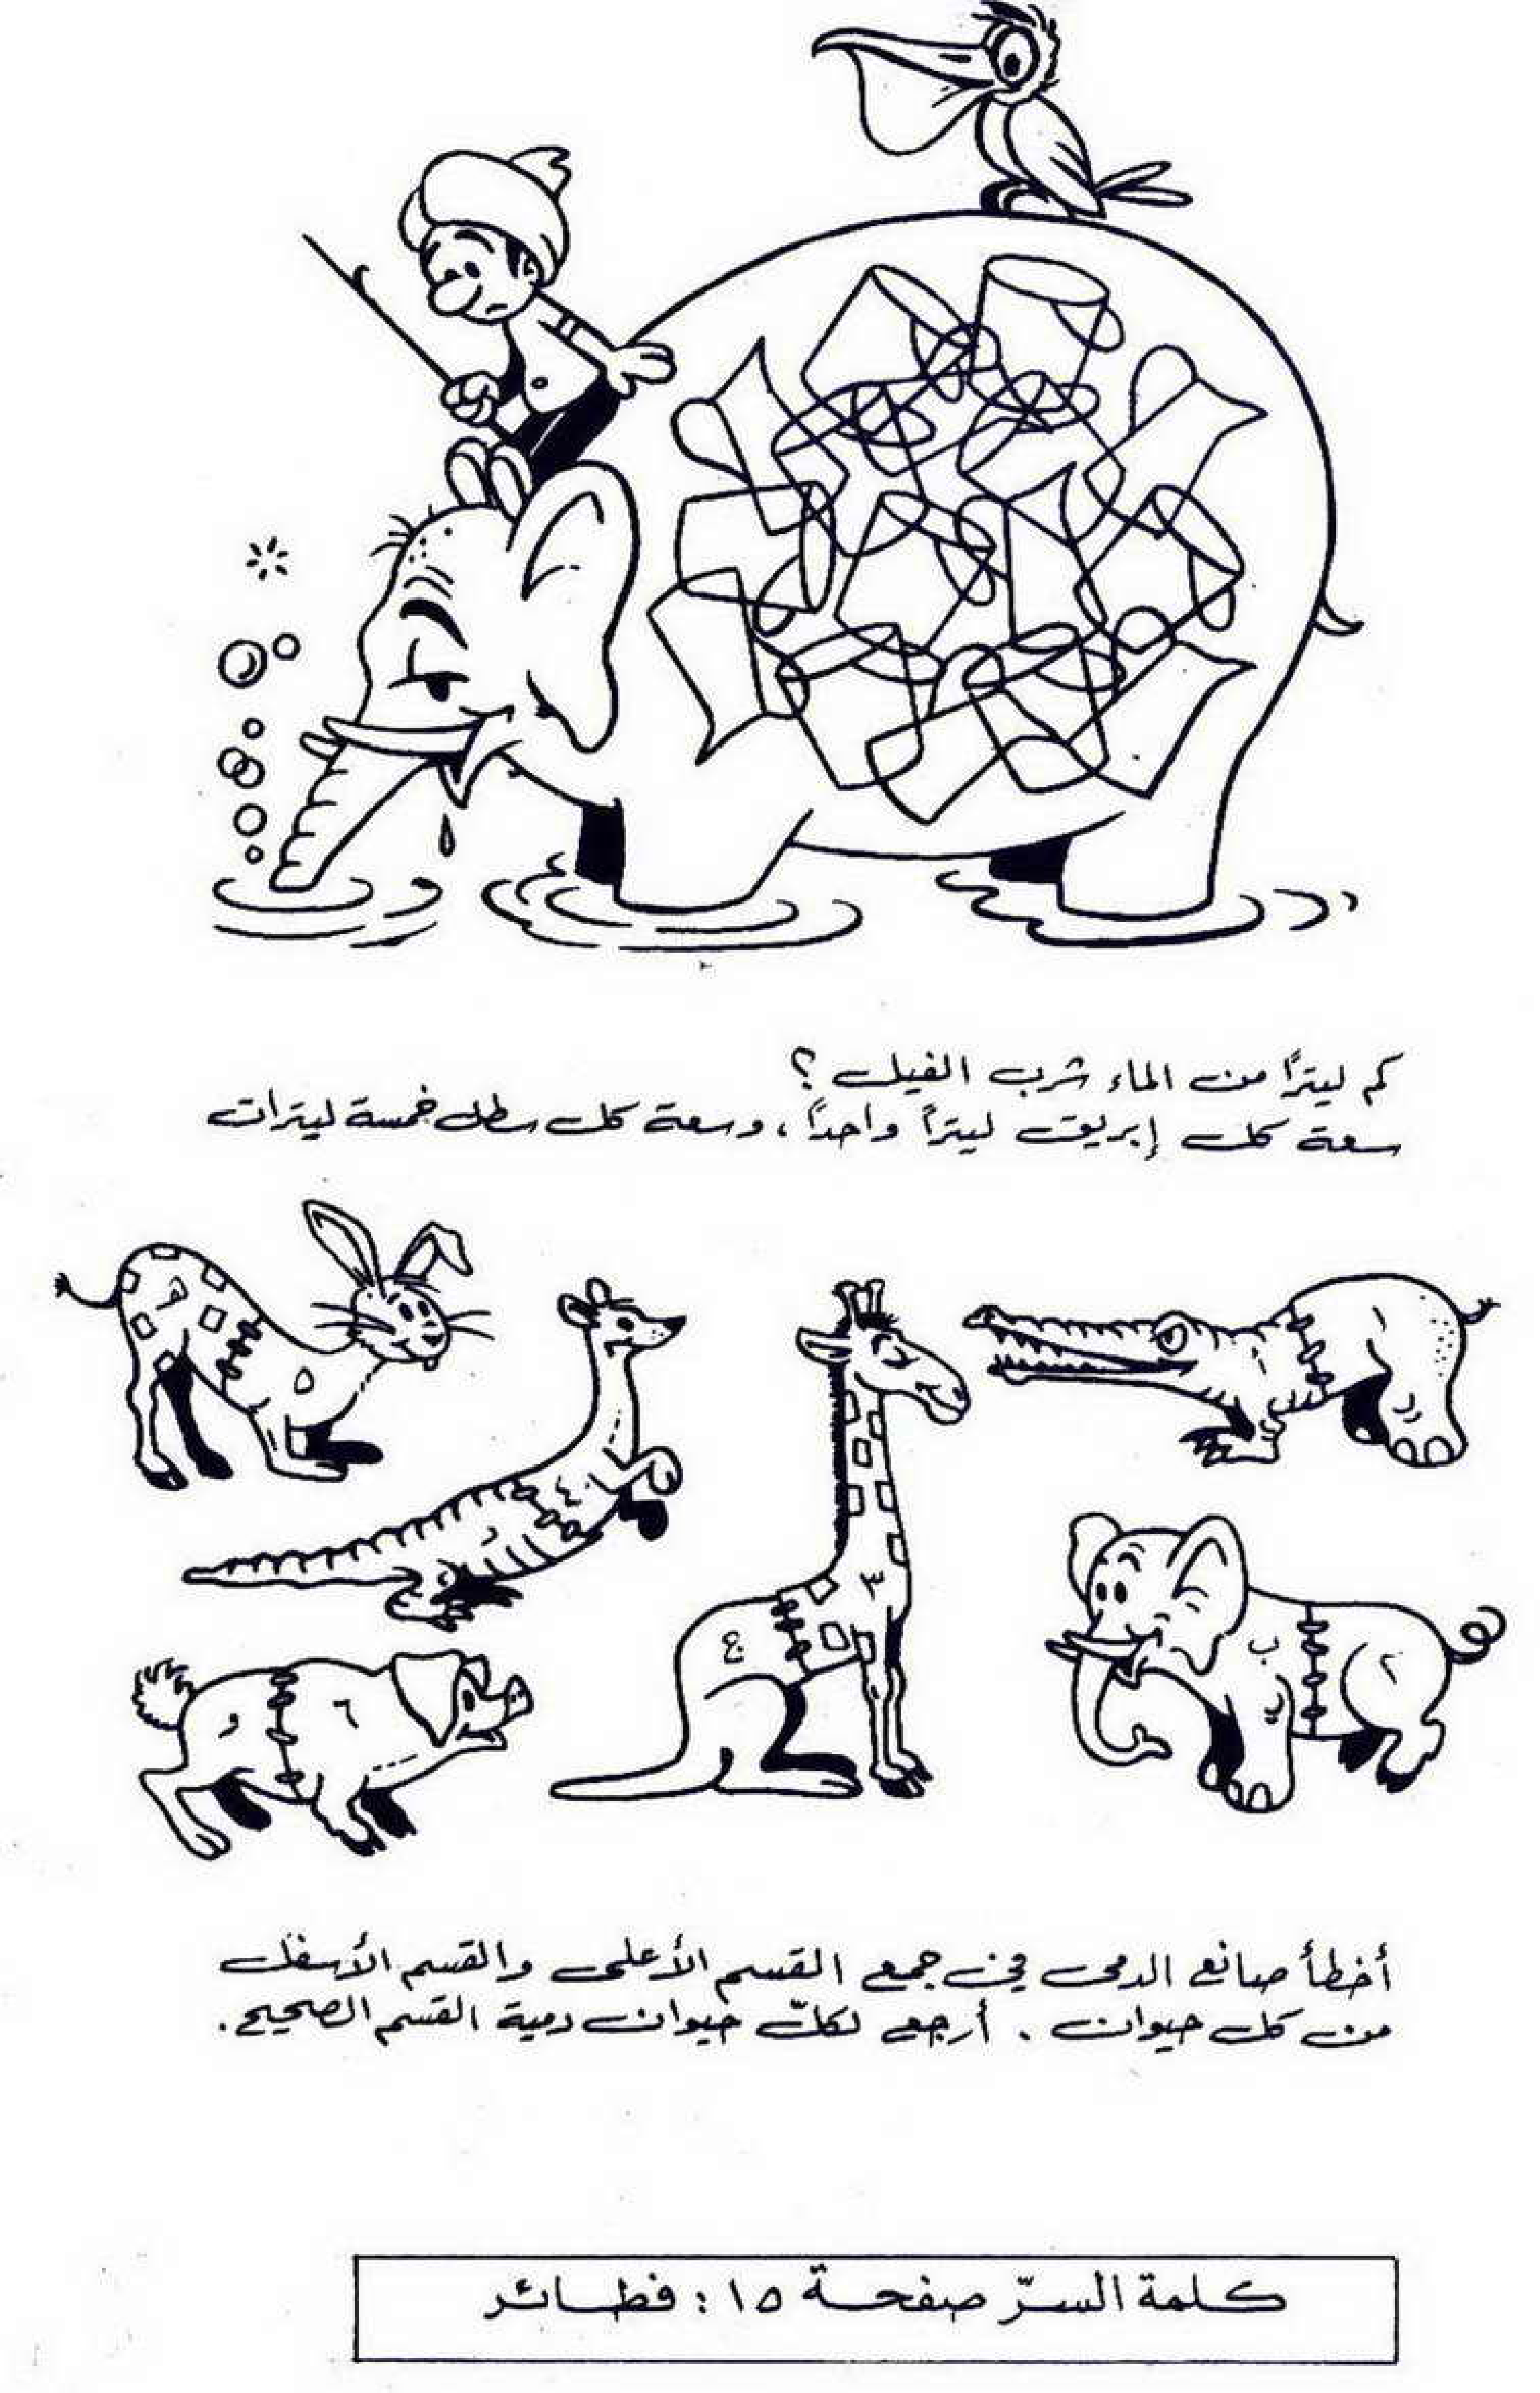 كم ليترًا من الماء شرب الفيل ؟
سعة كل إبريق ليترًا واحدًا ، وسعة كل سطل خمسة ليترات
ا
١
ب
٢
٣
ج
٤
د
٥
ه
٦
و
أخطأ صانع الدمى في جمع القسم الأعلى والقسم الأسفل
من كل حيوان . أرجع لكلّ حيوان دمية القسم الصحيح .
كلمة السرّ صفحة ١٥ : فطائر